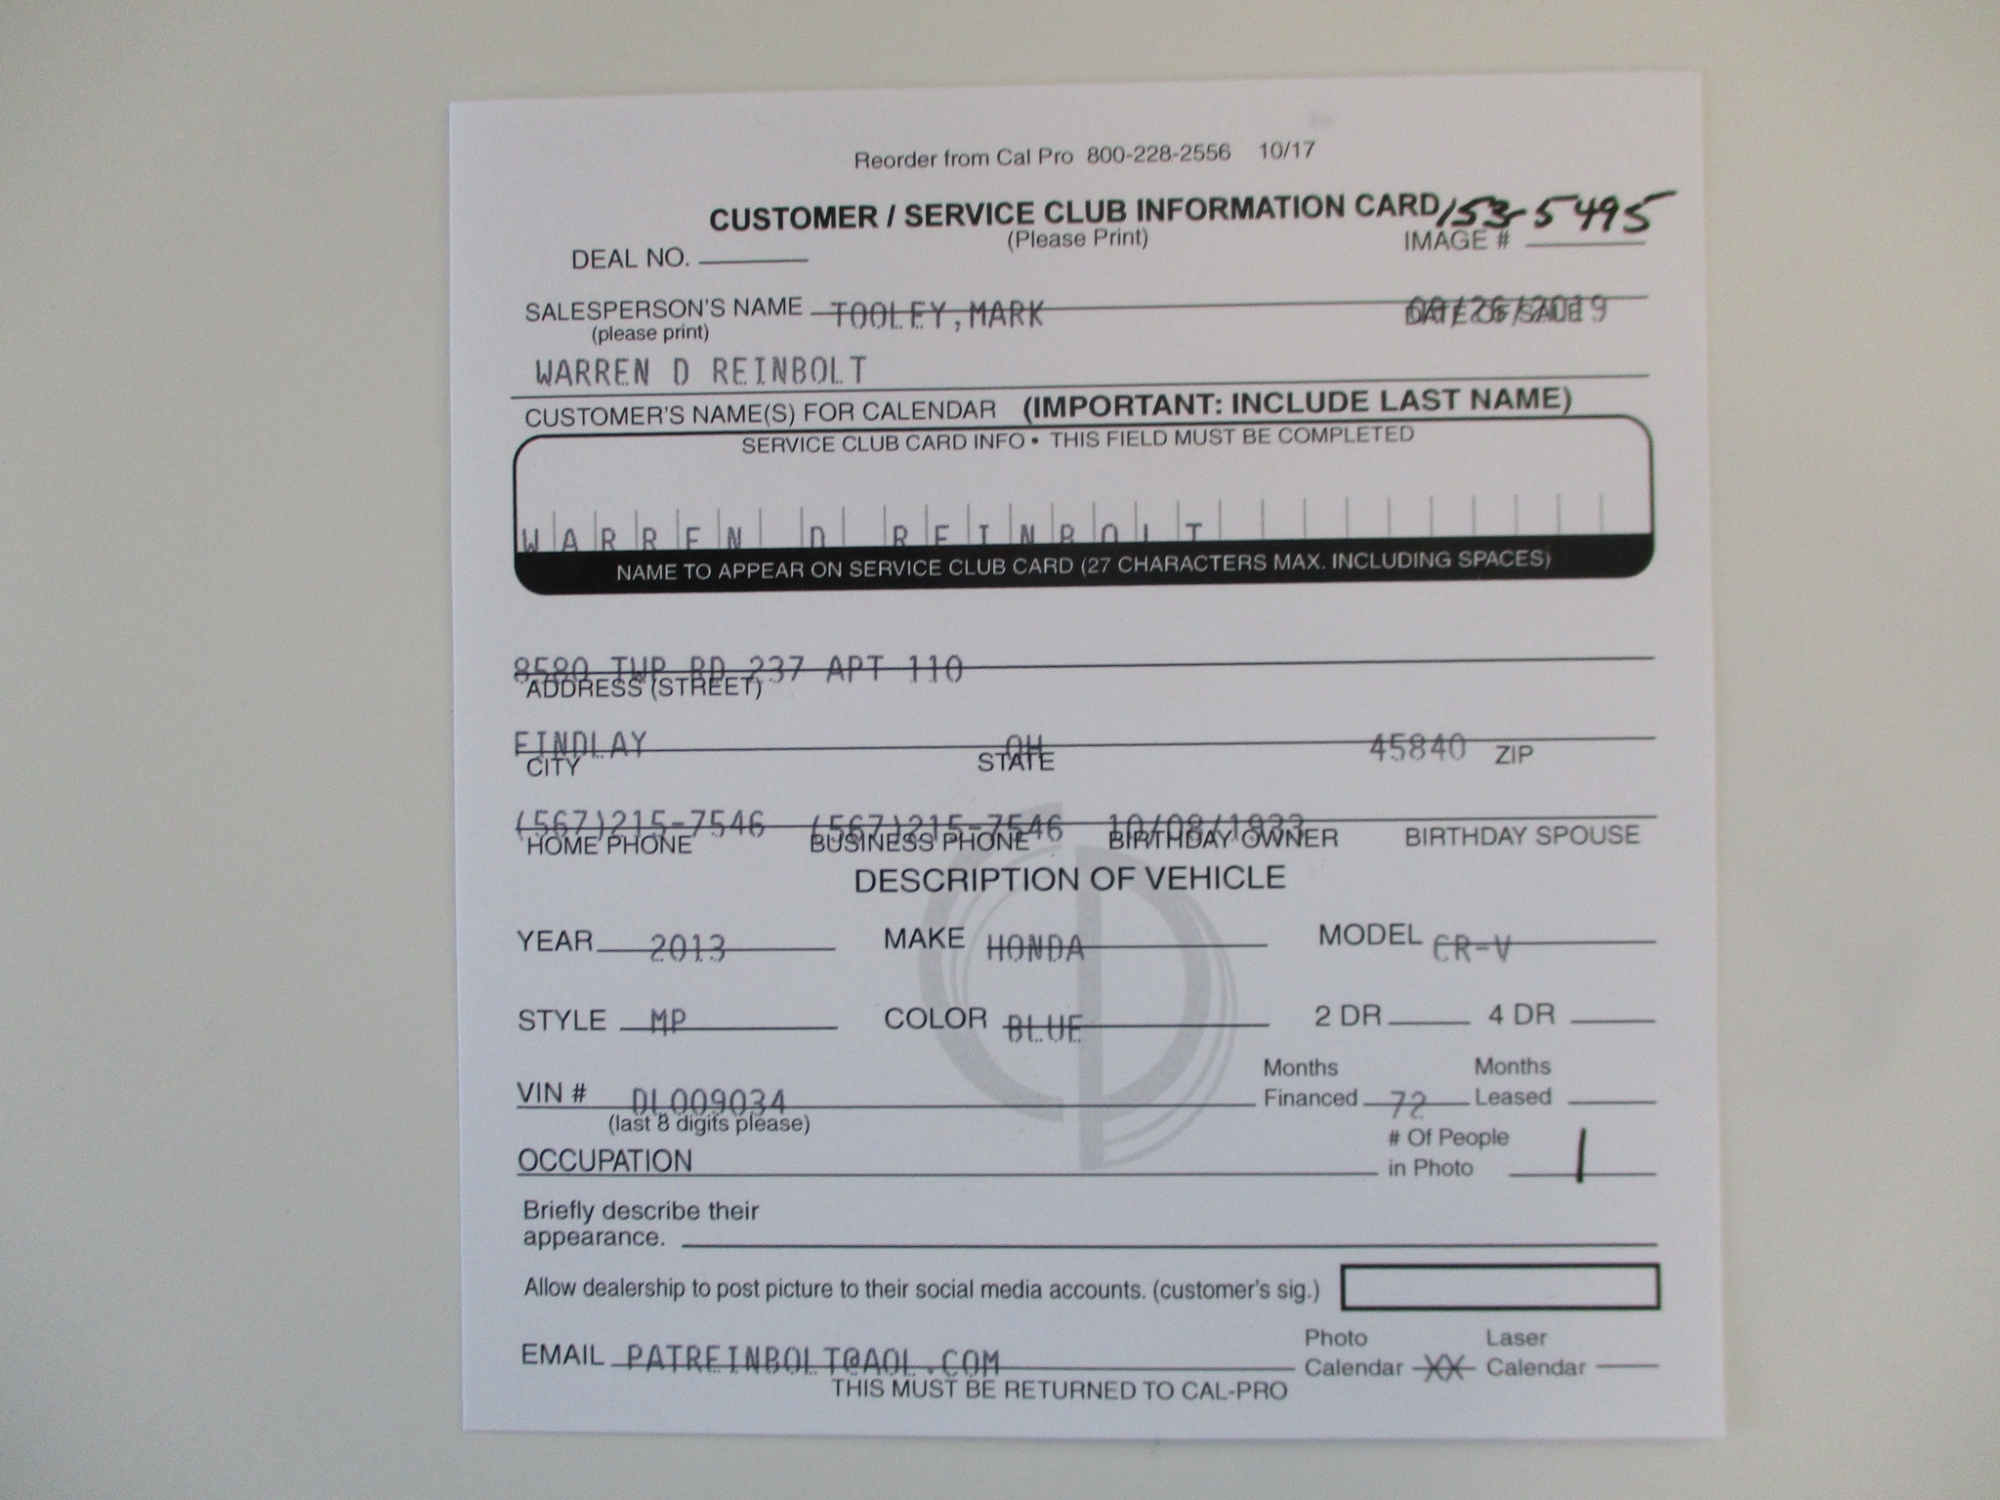 Reorder from Cal Pro 800-228-2556 10/17
CUSTOMER / SERVICE CLUB INFORMATION CARD 153-5495
(Please Print)
DEAL NO. IMAGE #
SALESPERSON'S NAME TOOLEY,MARK DATE OF SALE /26/2019
(please print)
WARREN D REINBOLT
CUSTOMER'S NAME(S) FOR CALENDAR (IMPORTANT: INCLUDE LAST NAME)
SERVICE CLUB CARD INFO • THIS FIELD MUST BE COMPLETED
WARREN D REINBOLT
NAME TO APPEAR ON SERVICE CLUB CARD (27 CHARACTERS MAX. INCLUDING SPACES)
8580 TWP RD 237 APT 110
ADDRESS (STREET)
FINDLAY OH 45840 ZIP
CITY STATE
(567)215-7546 (567)215-7546 10/08/1933
HOME PHONE BUSINESS PHONE BIRTHDAY OWNER BIRTHDAY SPOUSE
DESCRIPTION OF VEHICLE
YEAR 2013 MAKE HONDA MODEL CR-V
STYLE MP COLOR BLUE 2 DR 4 DR
Months Months
VIN # DL009034 Financed 72 Leased
(last 8 digits please)
# Of People
OCCUPATION in Photo 1
Briefly describe their
appearance.
Allow dealership to post picture to their social media accounts. (customer's sig.)
Photo Laser
EMAIL PATREINBOLT@AOL.COM Calendar XX Calendar
THIS MUST BE RETURNED TO CAL-PRO